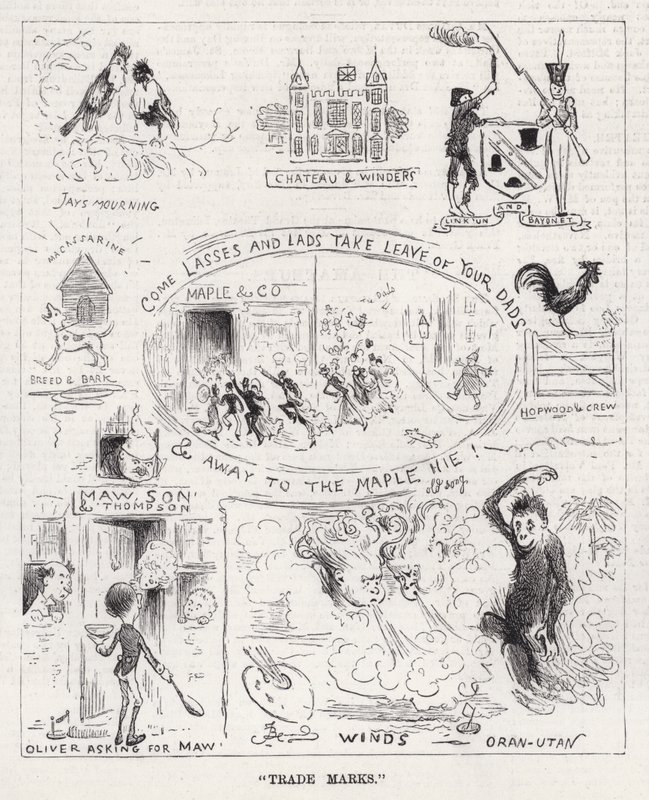 JAYS MOURNING
CHATEAU & WINDERS
LINK'UN AND BAYONET
MACASSARINE
BREED & BARK
COME LASSES AND LADS TAKE LEAVE OF YOUR DADS
MAPLE & CO
The Dads
& AWAY TO THE MAPLE HIE!
old song
HOPWOOD & CREW
MAW, SON
& THOMPSON
OLIVER ASKING FOR MAW!
WINDS
ORAN-UTAN
"TRADE MARKS."